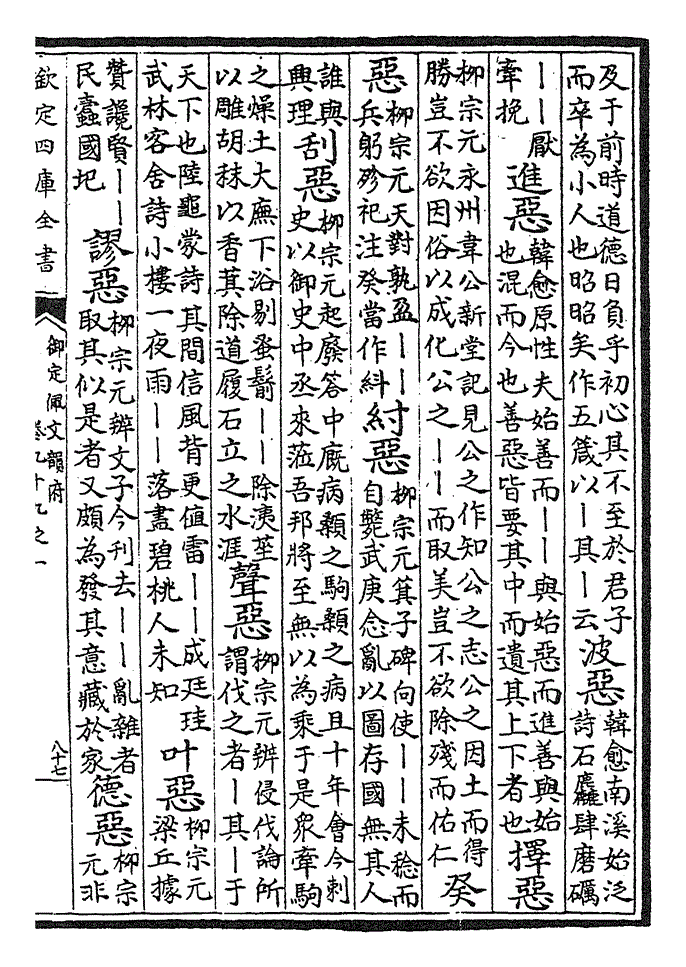 及于前時道德日負乎初心其不至於君子
而卒為小人也昭昭矣作五箴以丨其丨云
波惡
韓愈南溪始泛
詩石麤肆磨礪
丨丨厭
牽挽
進惡
韓愈原性夫始善而丨丨與始惡而進善與始
也混而今也善惡皆要其中而遺其上下者也
擇惡
柳宗元永州韋公新堂記見公之作知公之志公之因土而得
勝豈不欲因俗以成化公之丨丨而取美豈不欲除殘而佑仁
癸
惡
柳宗元天對孰盈丨丨
兵躬殄祀注癸當作紏
紂惡
柳宗元箕子碑向使丨丨未稔而
自斃武庚念亂以圖存國無其人
誰與
興理
刮惡
柳宗元起廢答中廄病顙之駒顙之病且十年會今刺
史以御史中丞來蒞吾邦將至無以為乘于是衆牽駒
之燥土大廡下浴剔蚤鬋丨丨除洟莝
以雕胡秣以香萁除道履石立之水涯
聲惡
柳宗元辨侵伐論所
謂伐之者丨其丨于
天下也陸龜蒙詩其間信風背更值雷丨丨成廷珪
武林客舍詩小樓一夜雨丨丨落盡碧桃人未知
叶惡
柳宗元
梁丘據
贊讒賢丨丨
民蠹國圮
謬惡
柳宗元辨文子今刊去丨丨亂雜者
取其似是者又頗為發其意藏於家
德惡
柳宗
元非
欽定四庫全書
御定佩文韻府
卷九十九之一
八十七